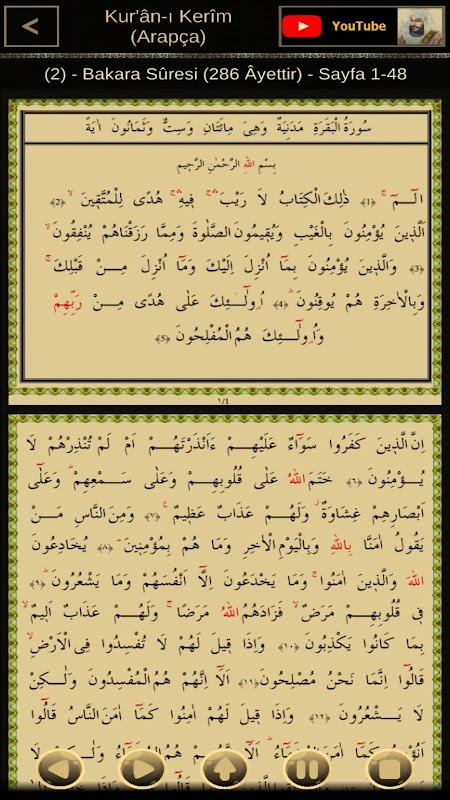 Kur'ân-ı Kerîm
(Arapça)
YouTube
(2) - Bakara Sûresi (286 Âyettir) - Sayfa 1-48
سُورَةُ الْبَقَرَةِ مَدَنِيَّةٌ وَهِىَ مِائَتَانِ وَسِتٌّ وَثَمَانُونَ اٰيَةً
بِسْمِ اللهِ الرَّحْمٰنِ الرَّحِيمِ
الٓمٓ ۚ ﴿١﴾ ذٰلِكَ الْكِتَابُ لَا رَيْبَ ۚۛ فِيهِ ۚۛ هُدًى لِلْمُتَّقِينَ ۙ ﴿٢﴾
اَلَّذِينَ يُؤْمِنُونَ بِالْغَيْبِ وَيُقِيمُونَ الصَّلٰوةَ وَمِمَّا رَزَقْنَاهُمْ يُنْفِقُونَ ۙ
﴿٣﴾ وَالَّذِينَ يُؤْمِنُونَ بِمَٓا اُنْزِلَ اِلَيْكَ وَمَٓا اُنْزِلَ مِنْ قَبْلِكَ ۚ
وَبِالْاٰخِرَةِ هُمْ يُوقِنُونَ ۜ ﴿٤﴾ اُو۬لٰٓئِكَ عَلٰى هُدًى مِنْ رَبِّهِمْ
وَاُو۬لٰٓئِكَ هُمُ الْمُفْلِحُونَ ﴿٥﴾
١/١
اِنَّ الَّذِينَ كَفَرُوا سَوَٓاءٌ عَلَيْهِمْ ءَاَنْذَرْتَهُمْ اَمْ لَمْ تُنْذِرْهُمْ لَا
يُؤْمِنُونَ ﴿٦﴾ خَتَمَ اللهُ عَلٰى قُلُوبِهِمْ وَعَلٰى سَمْعِهِمْ ۜ وَعَلٰٓى
اَبْصَارِهِمْ غِشَاوَةٌ ۘ وَلَهُمْ عَذَابٌ عَظِيمٌ ۟ ﴿٧﴾ وَمِنَ النَّاسِ مَنْ
يَقُولُ اٰمَنَّا بِاللهِ وَبِالْيَوْمِ الْاٰخِرِ وَمَا هُمْ بِمُؤْمِنِينَ ۢ ﴿٨﴾ يُخَادِعُونَ
اللهَ وَالَّذِينَ اٰمَنُوا ۚ وَمَا يَخْدَعُونَ اِلَّٓا اَنْفُسَهُمْ وَمَا يَشْعُرُونَ ۜ ﴿٩﴾
فِى قُلُوبِهِمْ مَرَضٌ ۙ فَزَادَهُمُ اللهُ مَرَضًا ۚ وَلَهُمْ عَذَابٌ اَلِيمٌ ۙ
بِمَا كَانُوا يَكْذِبُونَ ﴿١٠﴾ وَاِذَا قِيلَ لَهُمْ لَا تُفْسِدُوا فِى الْاَرْضِ ۙ
قَالُٓوا اِنَّمَا نَحْنُ مُصْلِحُونَ ﴿١١﴾ اَلَٓا اِنَّهُمْ هُمُ الْمُفْسِدُونَ وَلٰكِنْ
لَا يَشْعُرُونَ ﴿١٢﴾ وَاِذَا قِيلَ لَهُمْ اٰمِنُوا كَمَٓا اٰمَنَ النَّاسُ قَالُٓوا
اَنُؤْمِنُ كَمَٓا اٰمَنَ السُّفَهَٓاءُ ۜ اَلَٓا اِنَّهُمْ هُمُ السُّفَهَٓاءُ وَلٰكِنْ لَا